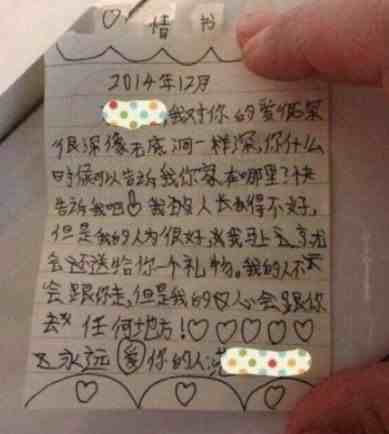 ♡ 情书
2014年12月
,我对你的爱
很深像无底洞一样深,你什么
时候可以告诉我你家在哪里?快
告诉我吧!我人长得不好,
但是我的人为很好,我马上
会还送给你一个礼物。我的人不
会跟你走,但是我的心会跟你
去 任何地方!♡♡♡♡♡
永远爱你的人